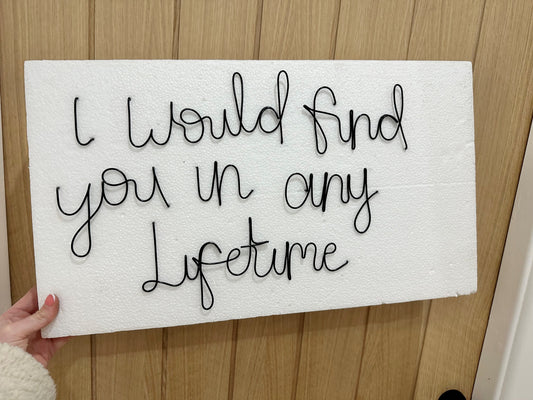 I would find
you in any
Lifetime